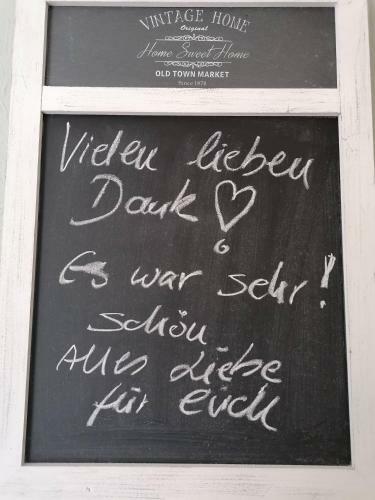 VINTAGE HOME
Original
Home Sweet Home
OLD TOWN MARKET
Since 1878
Vielen lieben
Dank ♡
Es war sehr!
schön
Alles Liebe
für euch